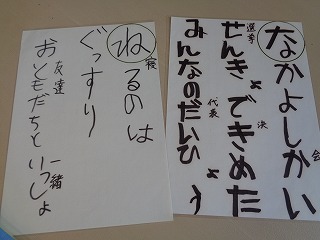 なかよしかい
会
せんきょできめた
選挙
決
みんなのだいひょう
代表
ねるのは
寝
ぐっすり
おともだちといっしょ
友達
一緒